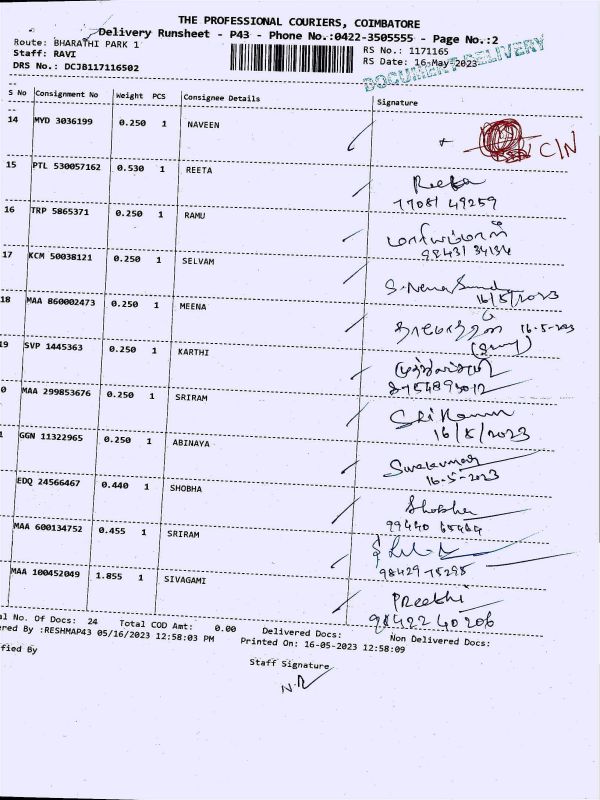 THE PROFESSIONAL COURIERS, COIMBATORE
Delivery Runsheet - P43 - Phone No.:0422-3505555 - Page No.:2
Route: BHARATHI PARK 1
RS No.: 1171165
Staff: RAVI
RS Date: 16-May-2023
DRS No.: DCJB117116502
DOCUMENT DELIVERY
S No Consignment No Weight PCS Consignee Details Signature
14 MYD 3036199 0.250 1 NAVEEN C/N
15 PTL 530057162 0.530 1 REETA Reeta
77081 49259
16 TRP 5865371 0.250 1 RAMU
98431 34134
17 KCM 50038121 0.250 1 SELVAM
16/5/2023
18 MAA 860002473 0.250 1 MEENA 16-5-2023
19 SVP 1445363 0.250 1 KARTHI
0 MAA 299853676 0.250 1 SRIRAM
16/5/2023
1 GGN 11322965 0.250 1 ABINAYA Sivakumar
16-5-2023
EDQ 24566467 0.440 1 SHOBHA Shobha
MAA 600134752 0.455 1 SRIRAM
98429 75295
MAA 100452049 1.855 1 SIVAGAMI Preethi
98422 40206
al No. Of Docs: 24 Total COD Amt: 0.00 Delivered Docs: Non Delivered Docs:
ered By :RESHMAP43 05/16/2023 12:58:03 PM Printed On: 16-05-2023 12:58:09
ified By
Staff Signature